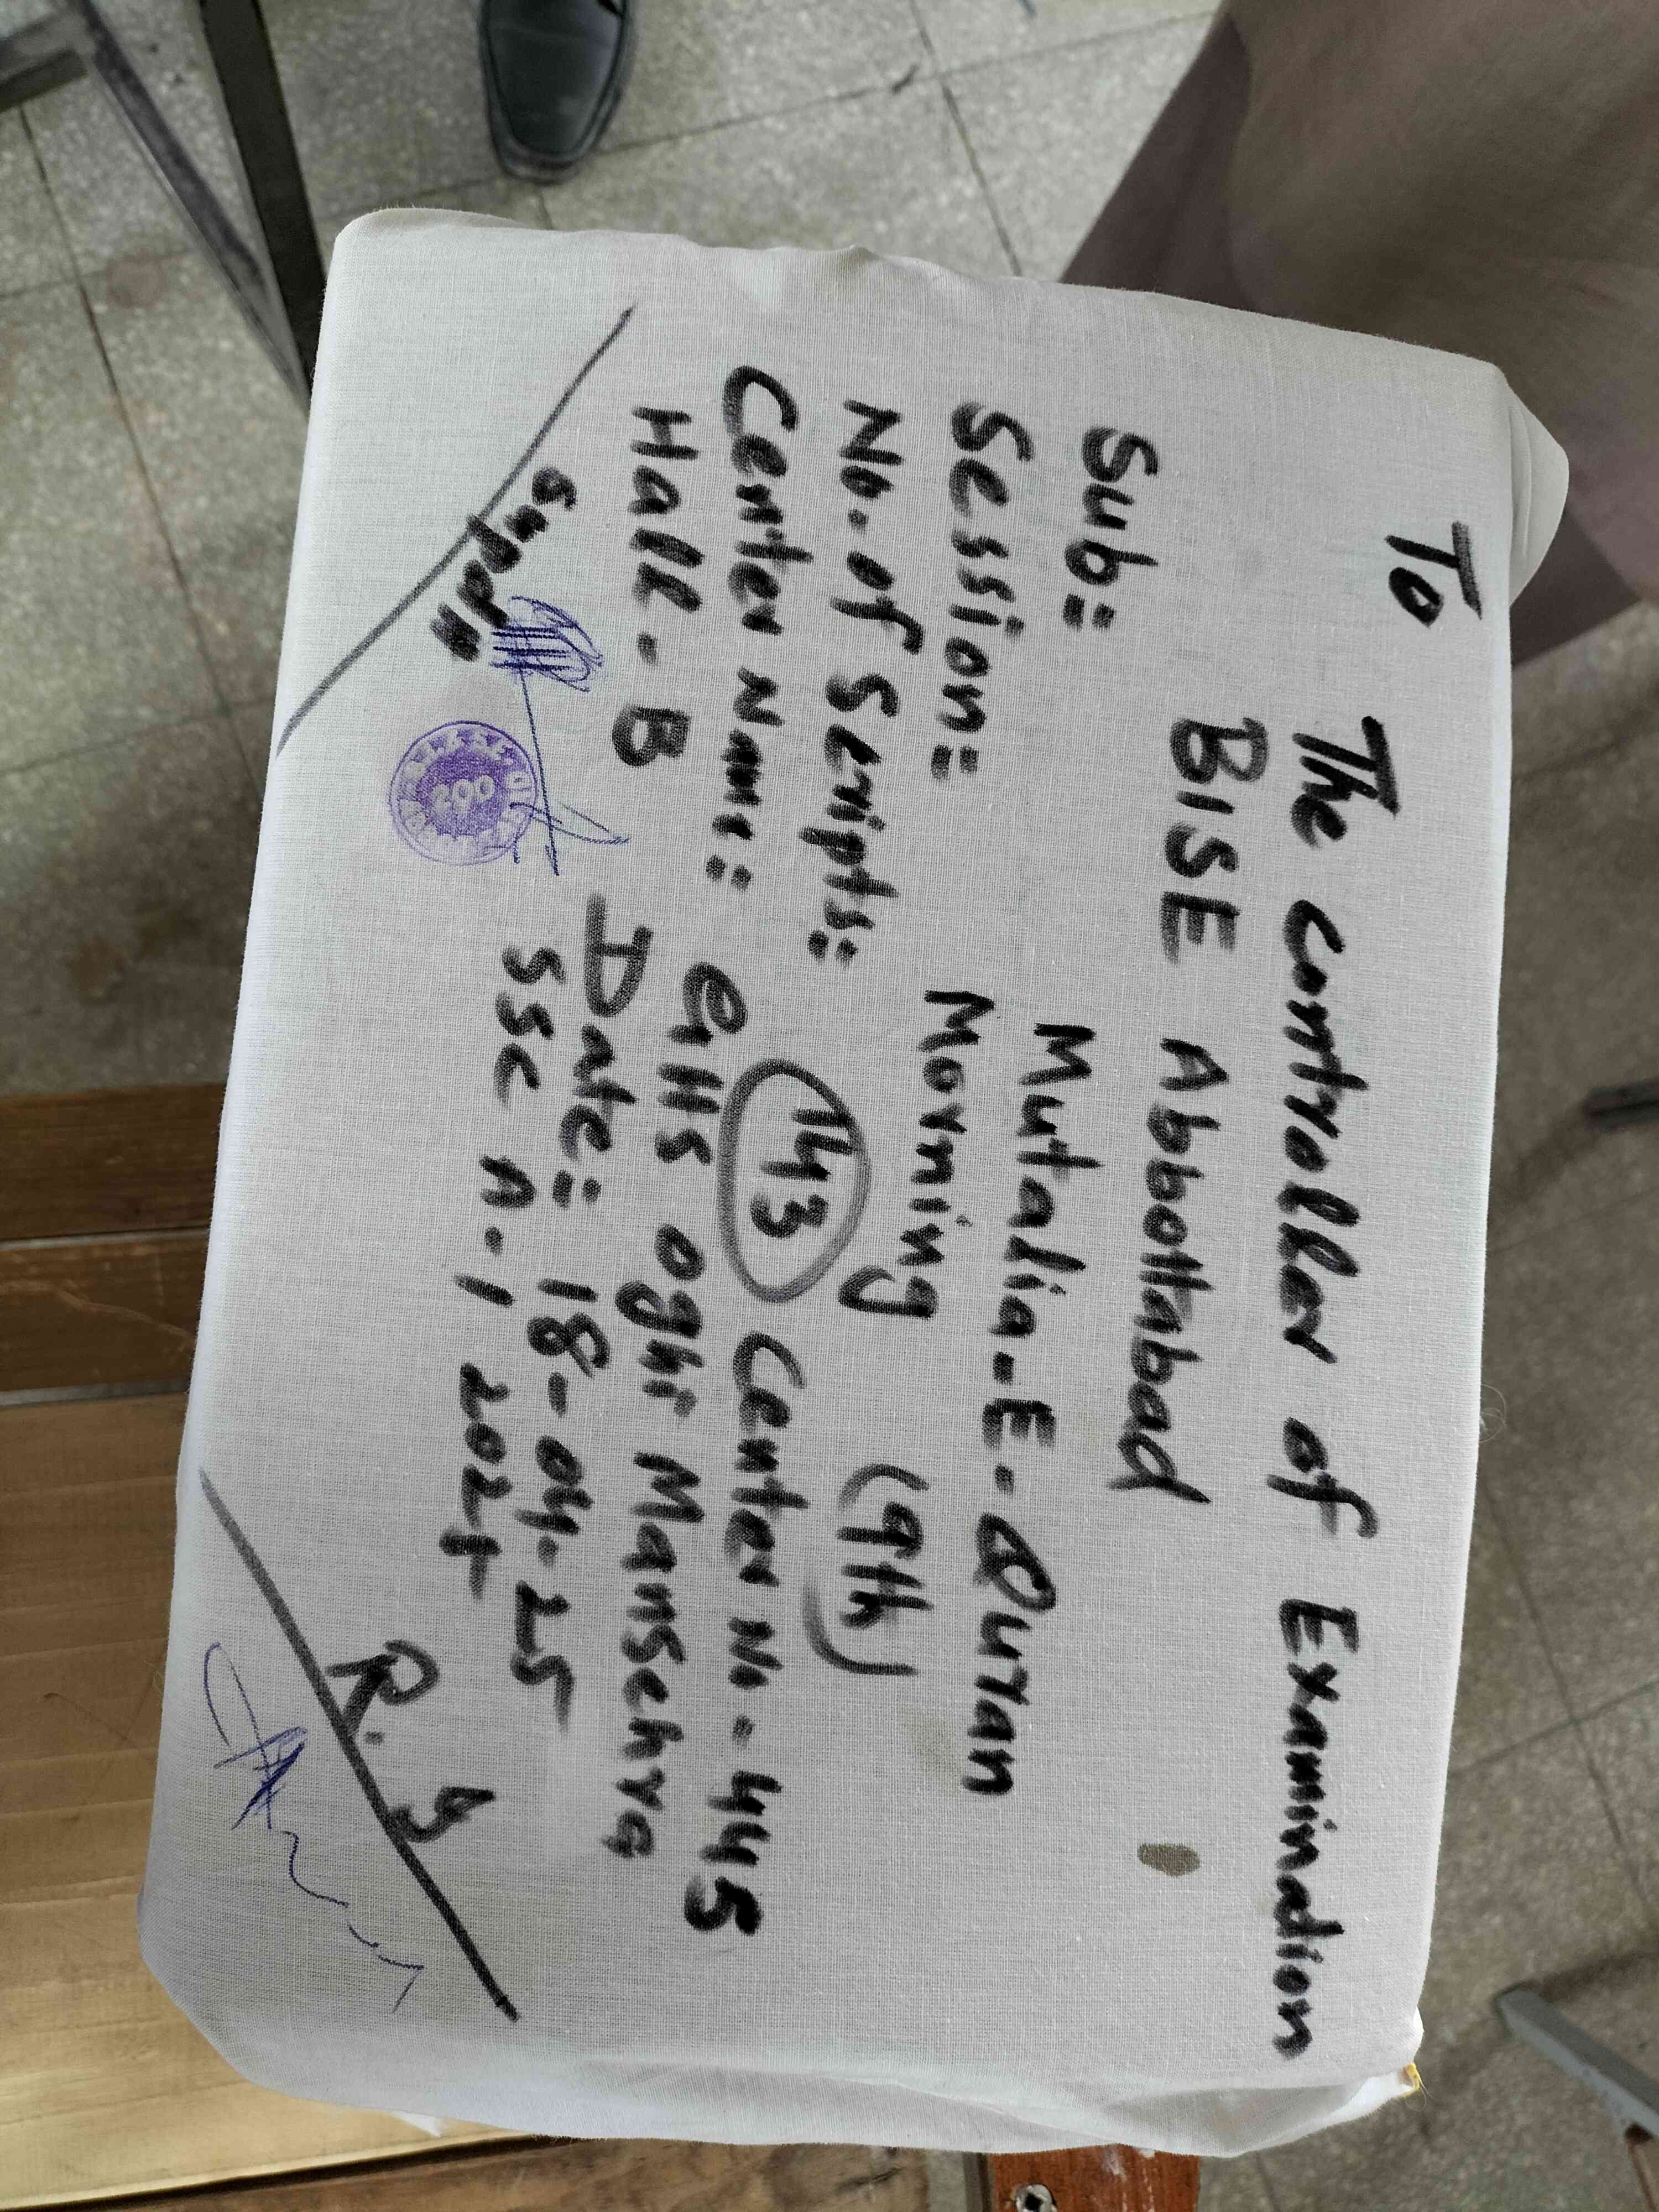 To
The controller of Examination
BISE Abbottabad
Sub:= Mutalia-E-Quran
Session:= Morning (9th)
No. of Scripts:= 143 Center No-445
Center Name:= GHS Oghi Mansehra
Hall-B Date:= 18-04-25
SSC A-1 2024
Supdtt
R.S
200